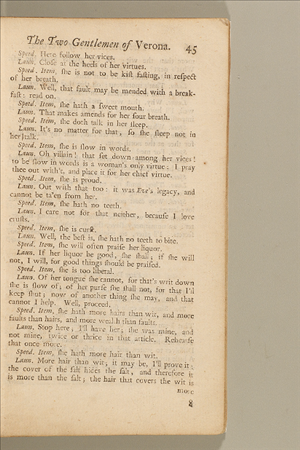 The Two Gentlemen of Verona. 45
Speed. Here follow her vices.
Laun. Close at the heels of her virtues.
Speed. Item, ſhe is not to be kiſt faſting, in reſpect
of her breath.
Laun. Well, that fault may be mended with a break-
faſt: read on.
Speed. Item, ſhe hath a ſweet mouth.
Laun. That makes amends for her ſour breath.
Speed. Item, ſhe doth talk in her ſleep.
Laun. It's no matter for that, ſo ſhe ſleep not in
her talk.
Speed. Item, ſhe is ſlow in words.
Laun. Oh villain! that ſet down among her vices!
to be ſlow in words is a woman's only virtue: I pray
thee out with't, and place it for her chief virtue.
Speed. Item, ſhe is proud.
Laun. Out with that too: it was Eve's legacy, and
cannot be ta'en from her.
Speed. Item, ſhe hath no teeth.
Laun. I care not for that neither, becauſe I love
cruſts.
Speed. Item, ſhe is curſt.
Laun. Well, the beſt is, ſhe hath no teeth to bite.
Speed. Item, ſhe will often praiſe her liquor.
Laun. If her liquor be good, ſhe ſhall; if ſhe will
not, I will, for good things ſhould be praiſed.
Speed. Item, ſhe is too liberal.
Laun. Of her tongue ſhe cannot, for that's writ down
ſhe is ſlow of; of her purſe ſhe ſhall not, for that I'll
keep ſhut; now of another thing ſhe may, and that
cannot I help. Well, proceed.
Speed. Item, ſhe hath more hairs than wit, and more
faults than hairs, and more wealth than faults.
Laun. Stop here; I'll have her; ſhe was mine, and
not mine, twice or thrice in that article. Rehearſe
that once more.
Speed. Item, ſhe hath more hair than wit.
Laun. More hair than wit; it may be, I'll prove it:
the cover of the ſalt hides the ſalt, and therefore it
is more than the ſalt; the hair that covers the wit is
more